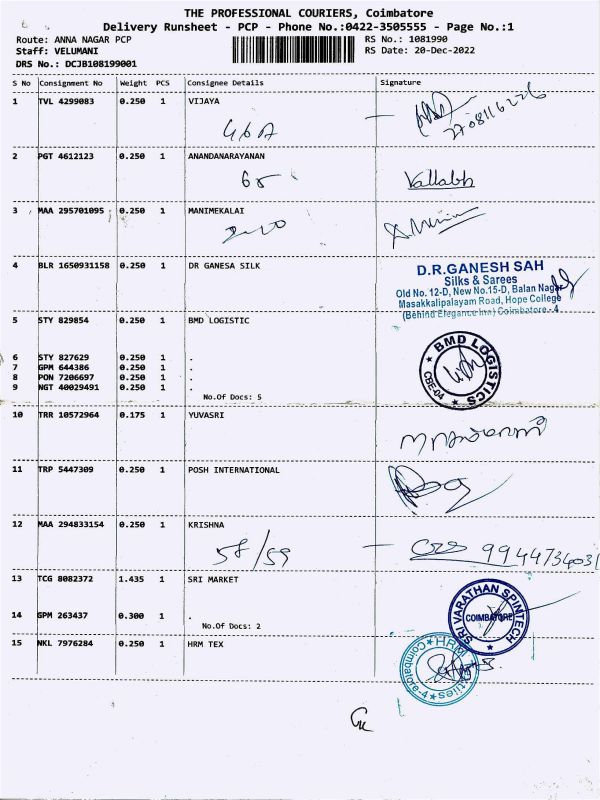 THE PROFESSIONAL COURIERS, Coimbatore
Delivery Runsheet - PCP - Phone No.:0422-3505555 - Page No.:1
Route: ANNA NAGAR PCP RS No.: 1081990
Staff: VELUMANI RS Date: 20-Dec-2022
DRS No.: DCJB108199001
S No Consignment No Weight PCS Consignee Details Signature
1 TVL 4299083 0.250 1 VIJAYA
2 PGT 4612123 0.250 1 ANANDANARAYANAN
Vallabh
3 MAA 295701095 0.250 1 MANIMEKALAI
4 BLR 1650931158 0.250 1 DR GANESA SILK
D.R.GANESH SAH
Silks & Sarees
Old No. 12-D, New No.15-D, Balan Nagar
Masakkalipalayam Road, Hope College
(Behind Elegance Inn) Coimbatore - 4
5 STY 829854 0.250 1 BMD LOGISTIC
6 STY 827629 0.250 1 .
7 GPM 644386 0.250 1 .
8 PON 7206697 0.250 1 .
9 NGT 40029491 0.250 1 .
No.Of Docs: 5
BMD LOGISTICS
CBE-04
10 TRR 10572964 0.175 1 YUVASRI
11 TRP 5447309 0.250 1 POSH INTERNATIONAL
12 MAA 294833154 0.250 1 KRISHNA
58/59
13 TCG 8082372 1.435 1 SRI MARKET
14 GPM 263437 0.300 1 .
No.Of Docs: 2
SRI VARATHAN SPINTECH
COIMBATORE
15 NKL 7976284 0.250 1 HRM TEX
Coimbatore-4